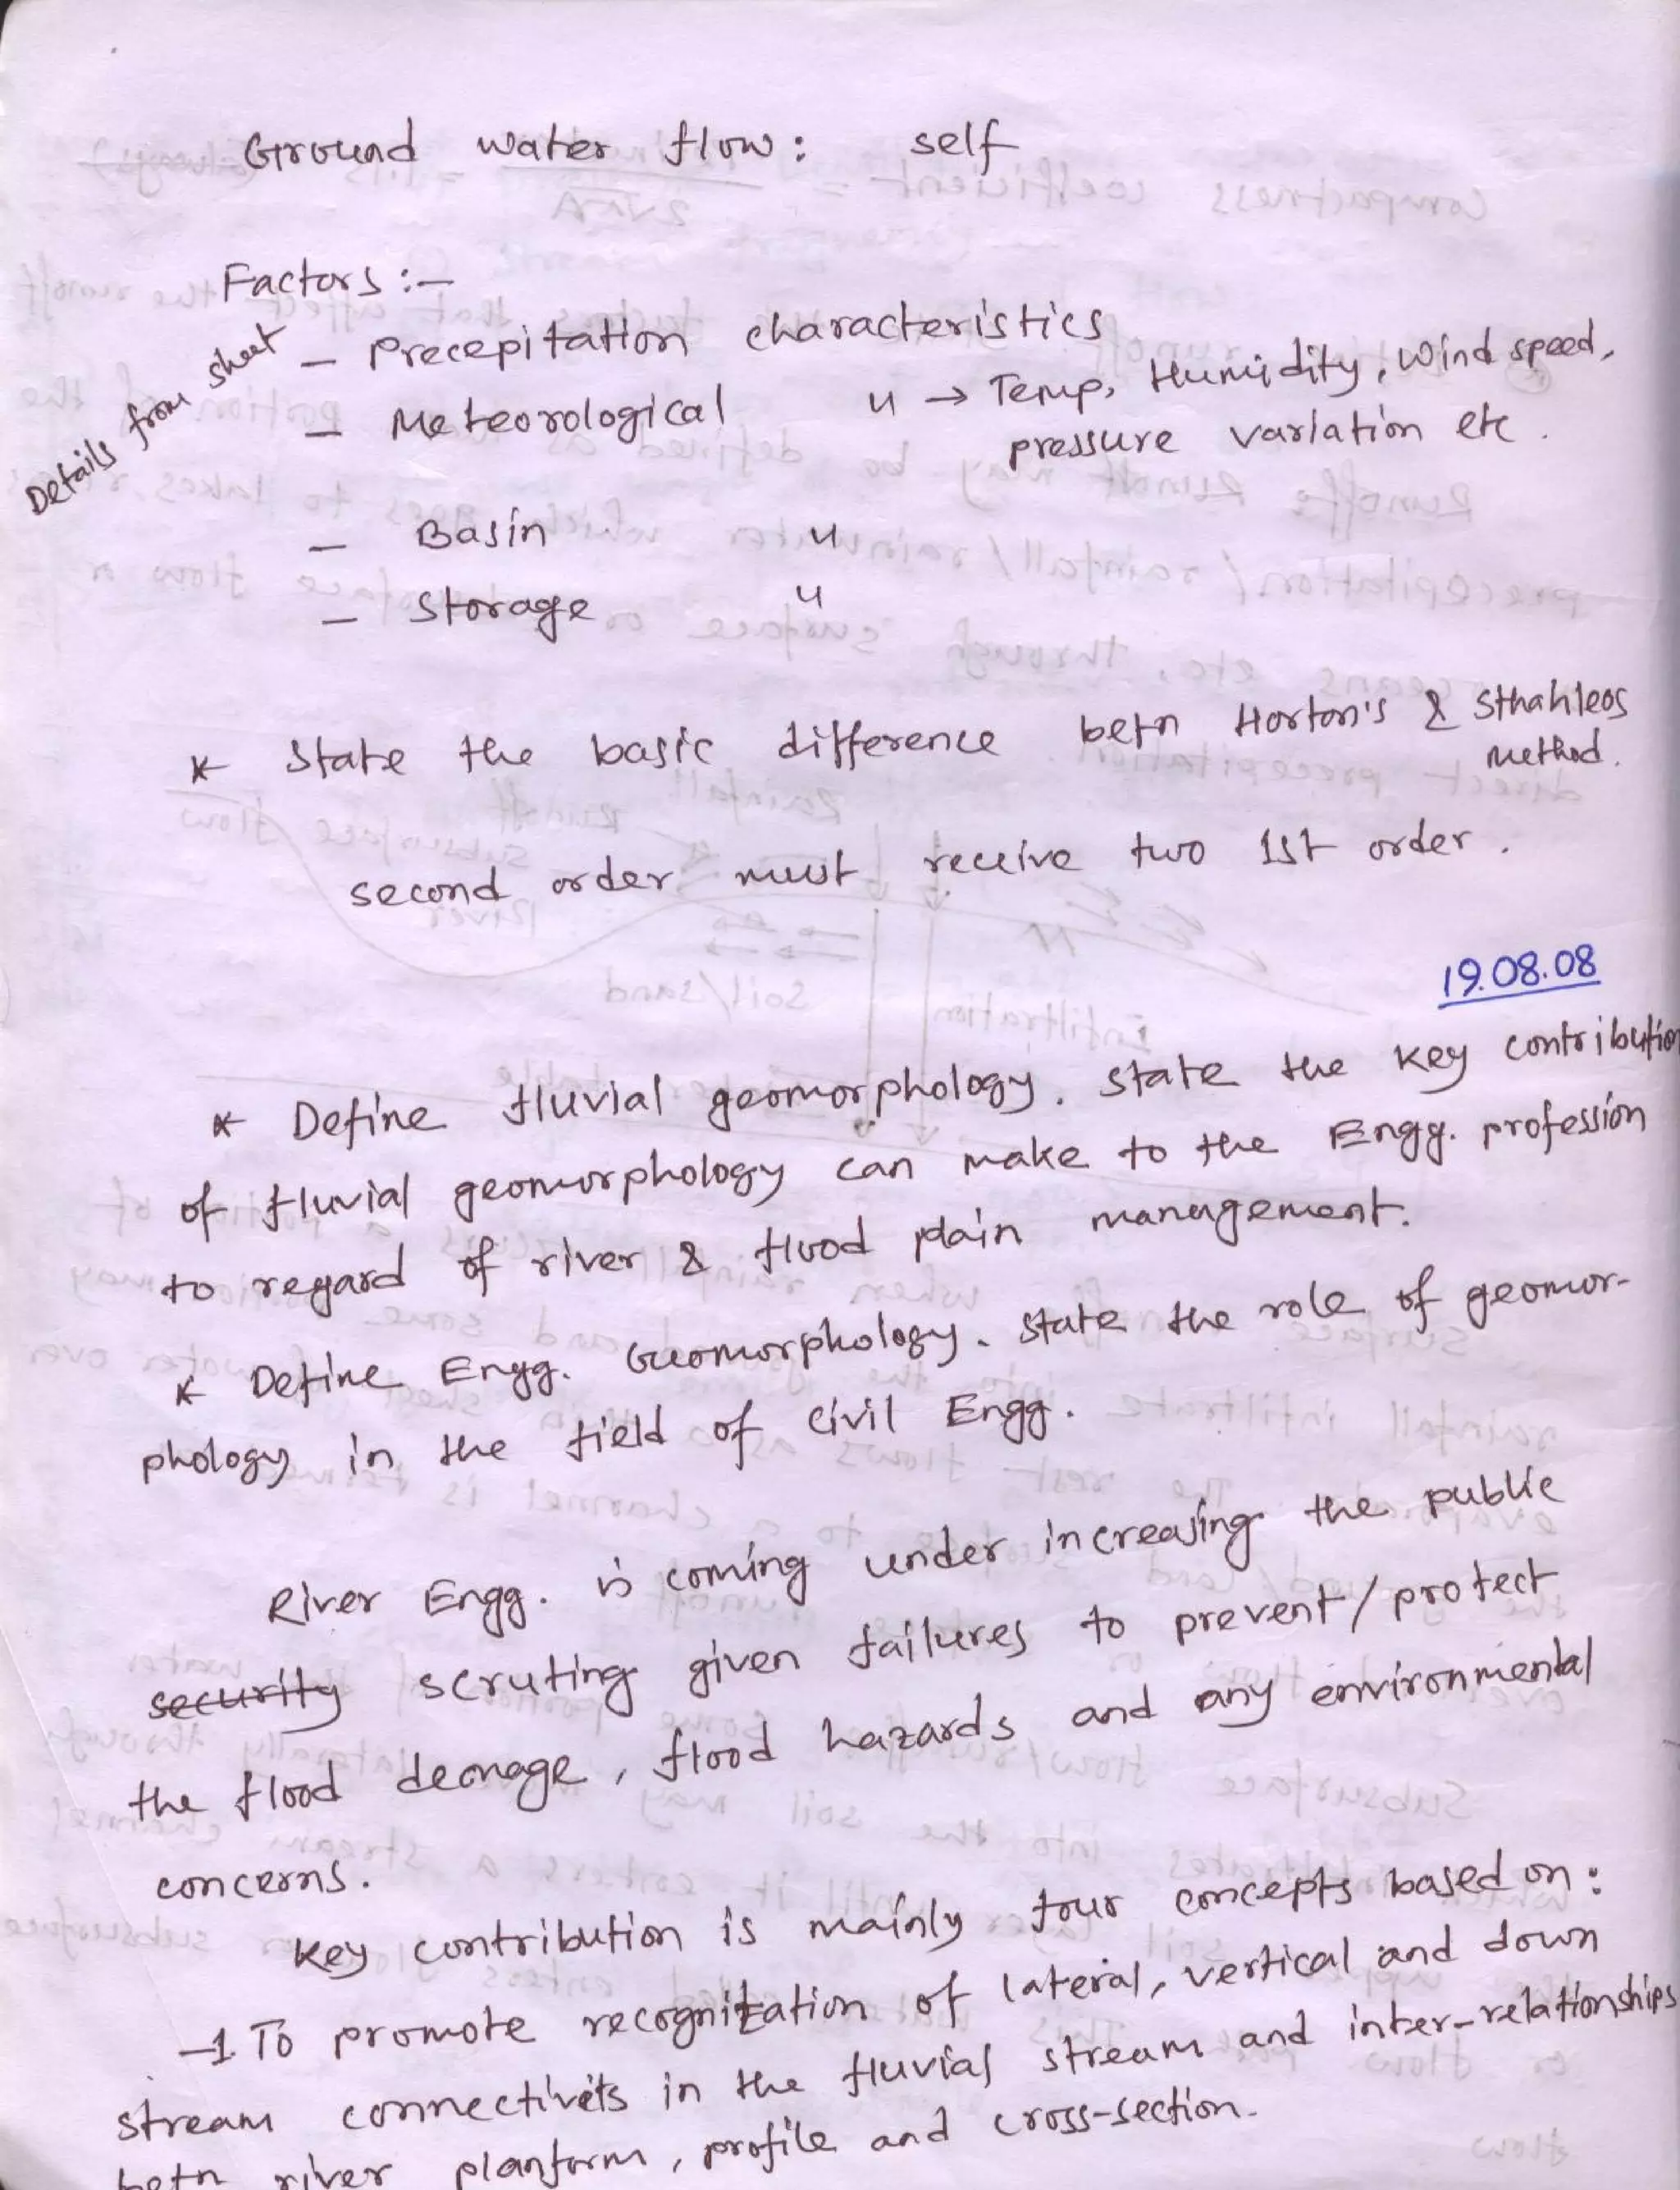 Ground water flow : self
Factors :-
Details from sheet
- Precepitation characteristics
- Meteorological " → Temp, Humidity, Wind speed,
pressure variation etc.
- Basin "
- Storage "
* State the basic difference betn Horton's & Sthahleos
Method.
second order must receive two 1st order.
19.08.08
* Define fluvial geomorphology. State the key contribution
of fluvial geomorphology can make to the Engg. profession
to regard of river & flood plain management.
* Define Engg. Geomorphology. State the role of geomor-
phology in the field of civil Engg.
River Engg. is coming under increasing the public
security scruting given failures to prevent/protect
the flood demage, flood hazards and any environmental
concerns.
Key contribution is mainly four concepts based on :
-1. To promote recognization of lateral, vertical and down
stream connectivets in the fluvial stream and inter-relationships
betn river planform, profile and cross-section.